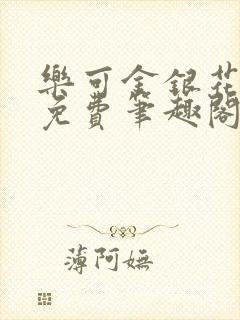 樂可金銀花
免費筆趣閣
薄阿嫵